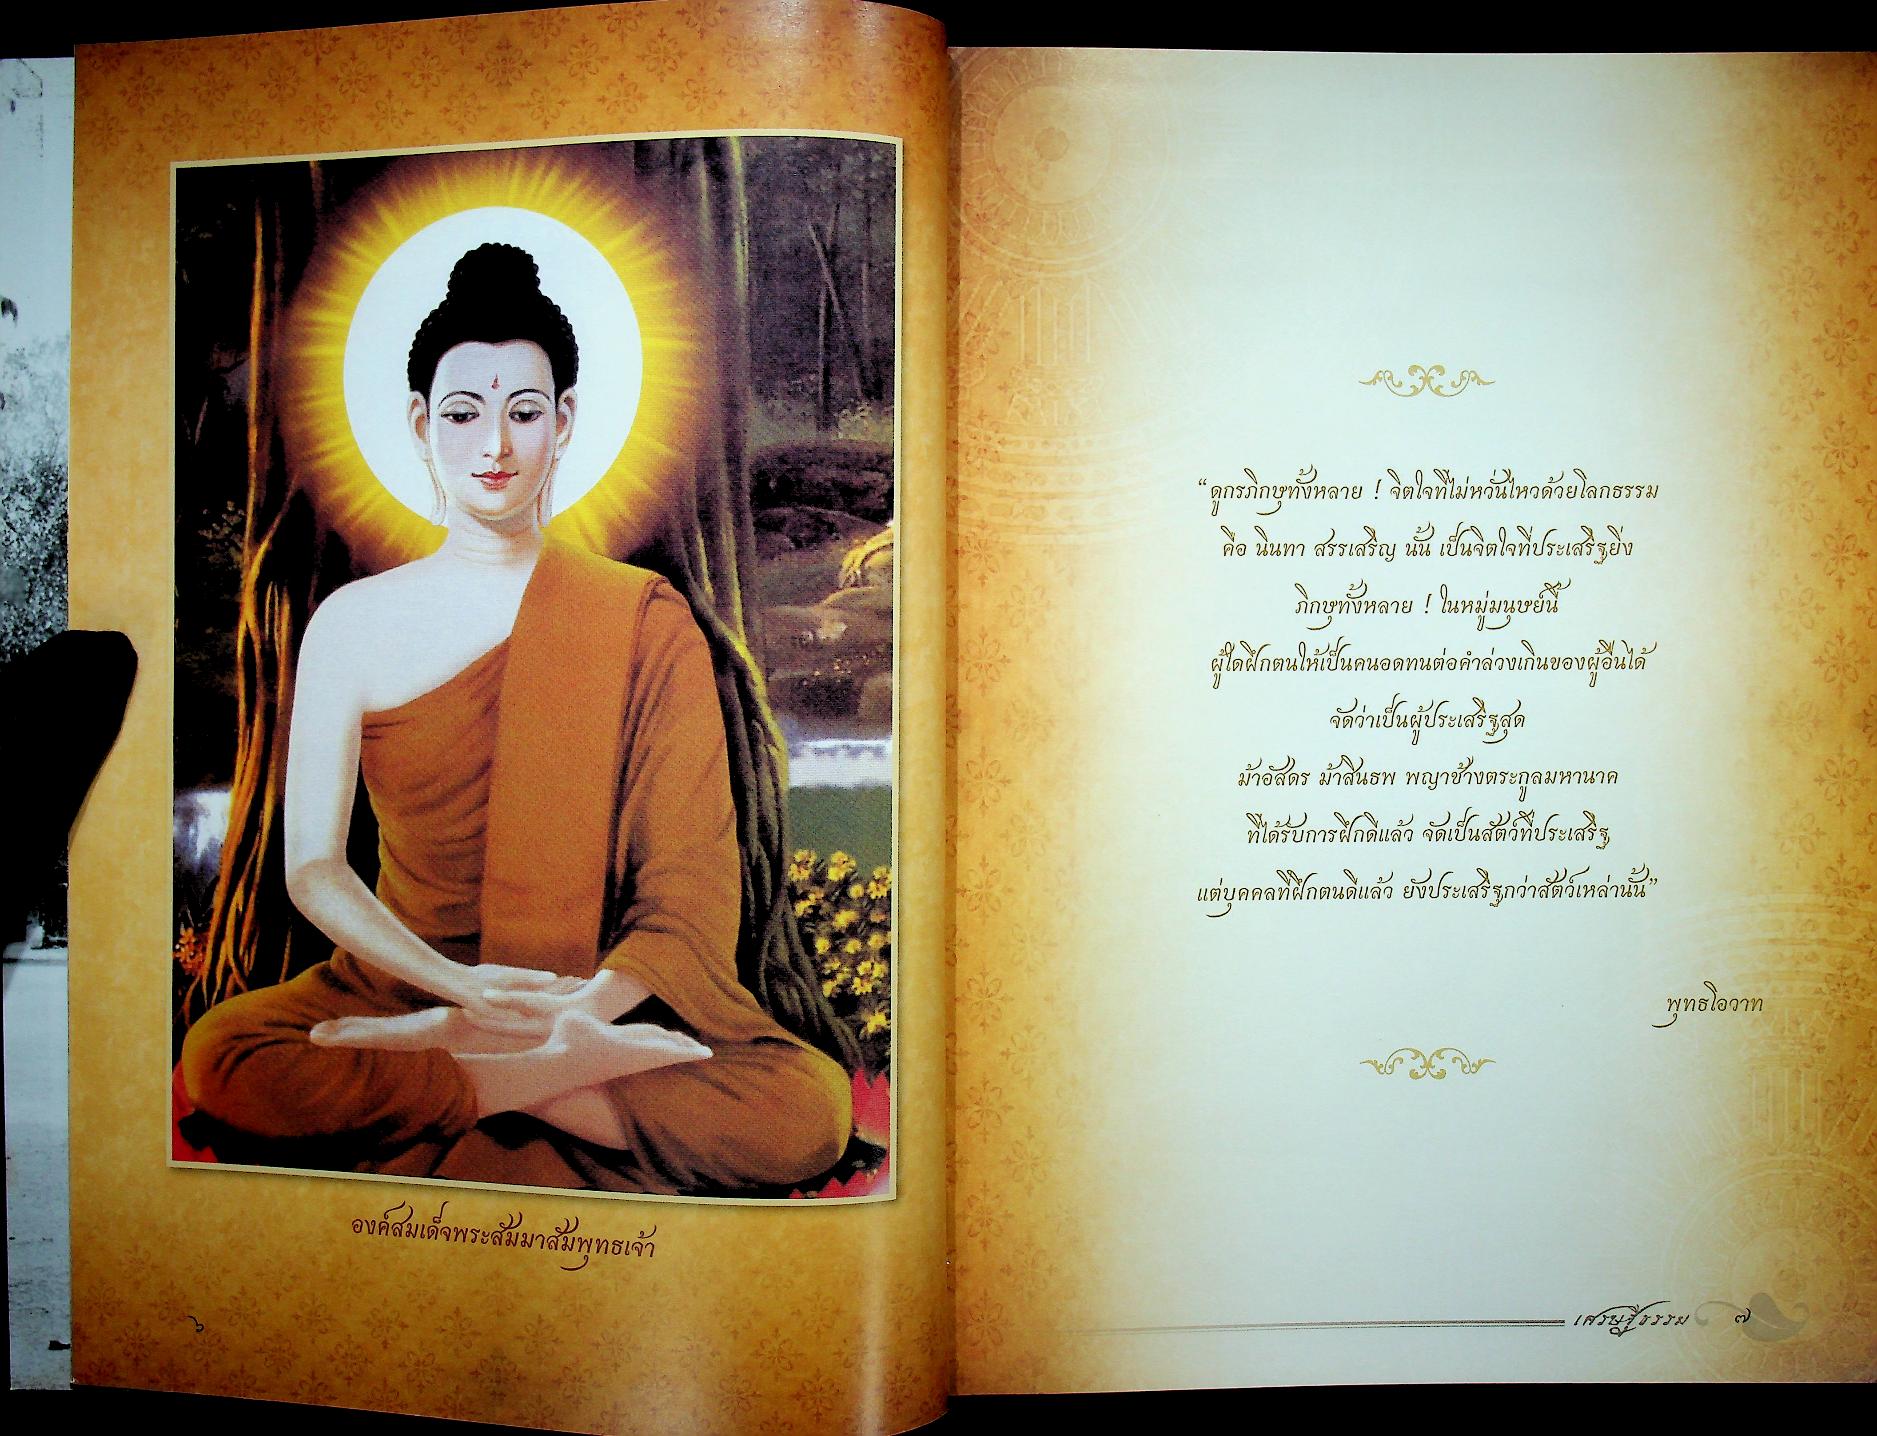 องค์สมเด็จพระสัมมาสัมพุทธเจ้า
๖
“ดูกรภิกษุทั้งหลาย ! จิตใจที่ไม่หวั่นไหวด้วยโลกธรรม
คือ นินทา สรรเสริญ นั้น เป็นจิตใจที่ประเสริฐยิ่ง
ภิกษุทั้งหลาย ! ในหมู่มนุษย์นี้
ผู้ใดฝึกตนให้เป็นคนอดทนต่อคำล่วงเกินของผู้อื่นได้
จัดว่าเป็นผู้ประเสริฐสุด
ม้าอัสดร ม้าสินธพ พญาช้างตระกูลมหานาค
ที่ได้รับการฝึกดีแล้ว จัดเป็นสัตว์ที่ประเสริฐ
แต่บุคคลที่ฝึกตนดีแล้ว ยังประเสริฐกว่าสัตว์เหล่านั้น”
พุทธโอวาท
เศรษฐีธรรม ๗